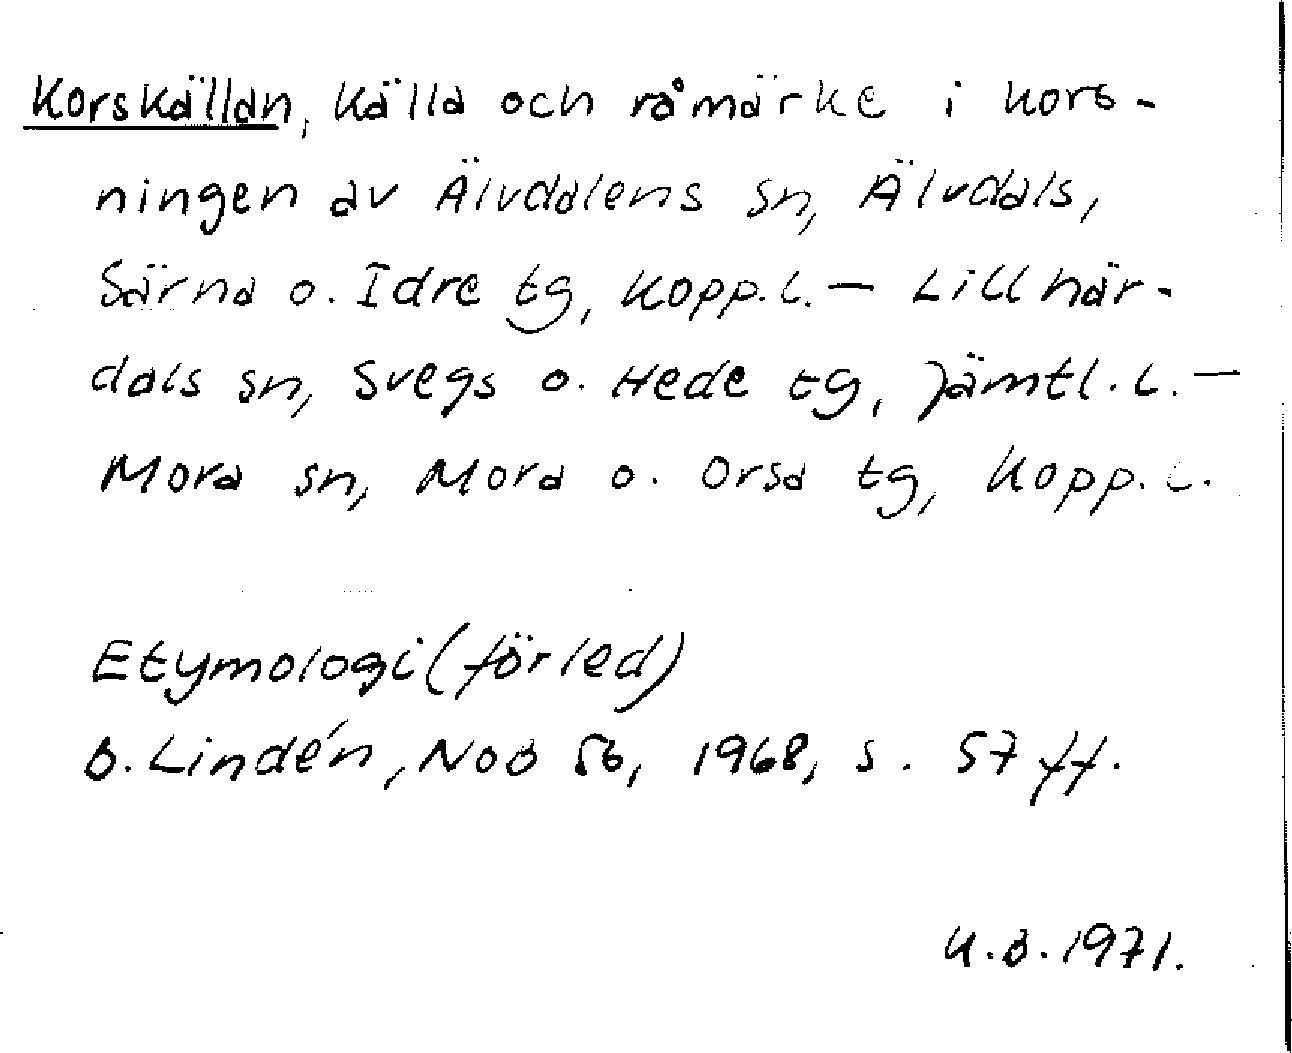 Korskällan, källa och råmärke i kors-
ningen av Älvdalens sn, Älvdals,
Särna o. Idre tg, Kopp.l. — Lillhär-
dals sn, Svegs o. Hede tg, Jämtl.l. —
Mora sn, Mora o. Orsa tg, Kopp.l.
Etymologi (förled)
B. Lindén, NoB 56, 1968, s. 57 ff.
K.B. 1971.